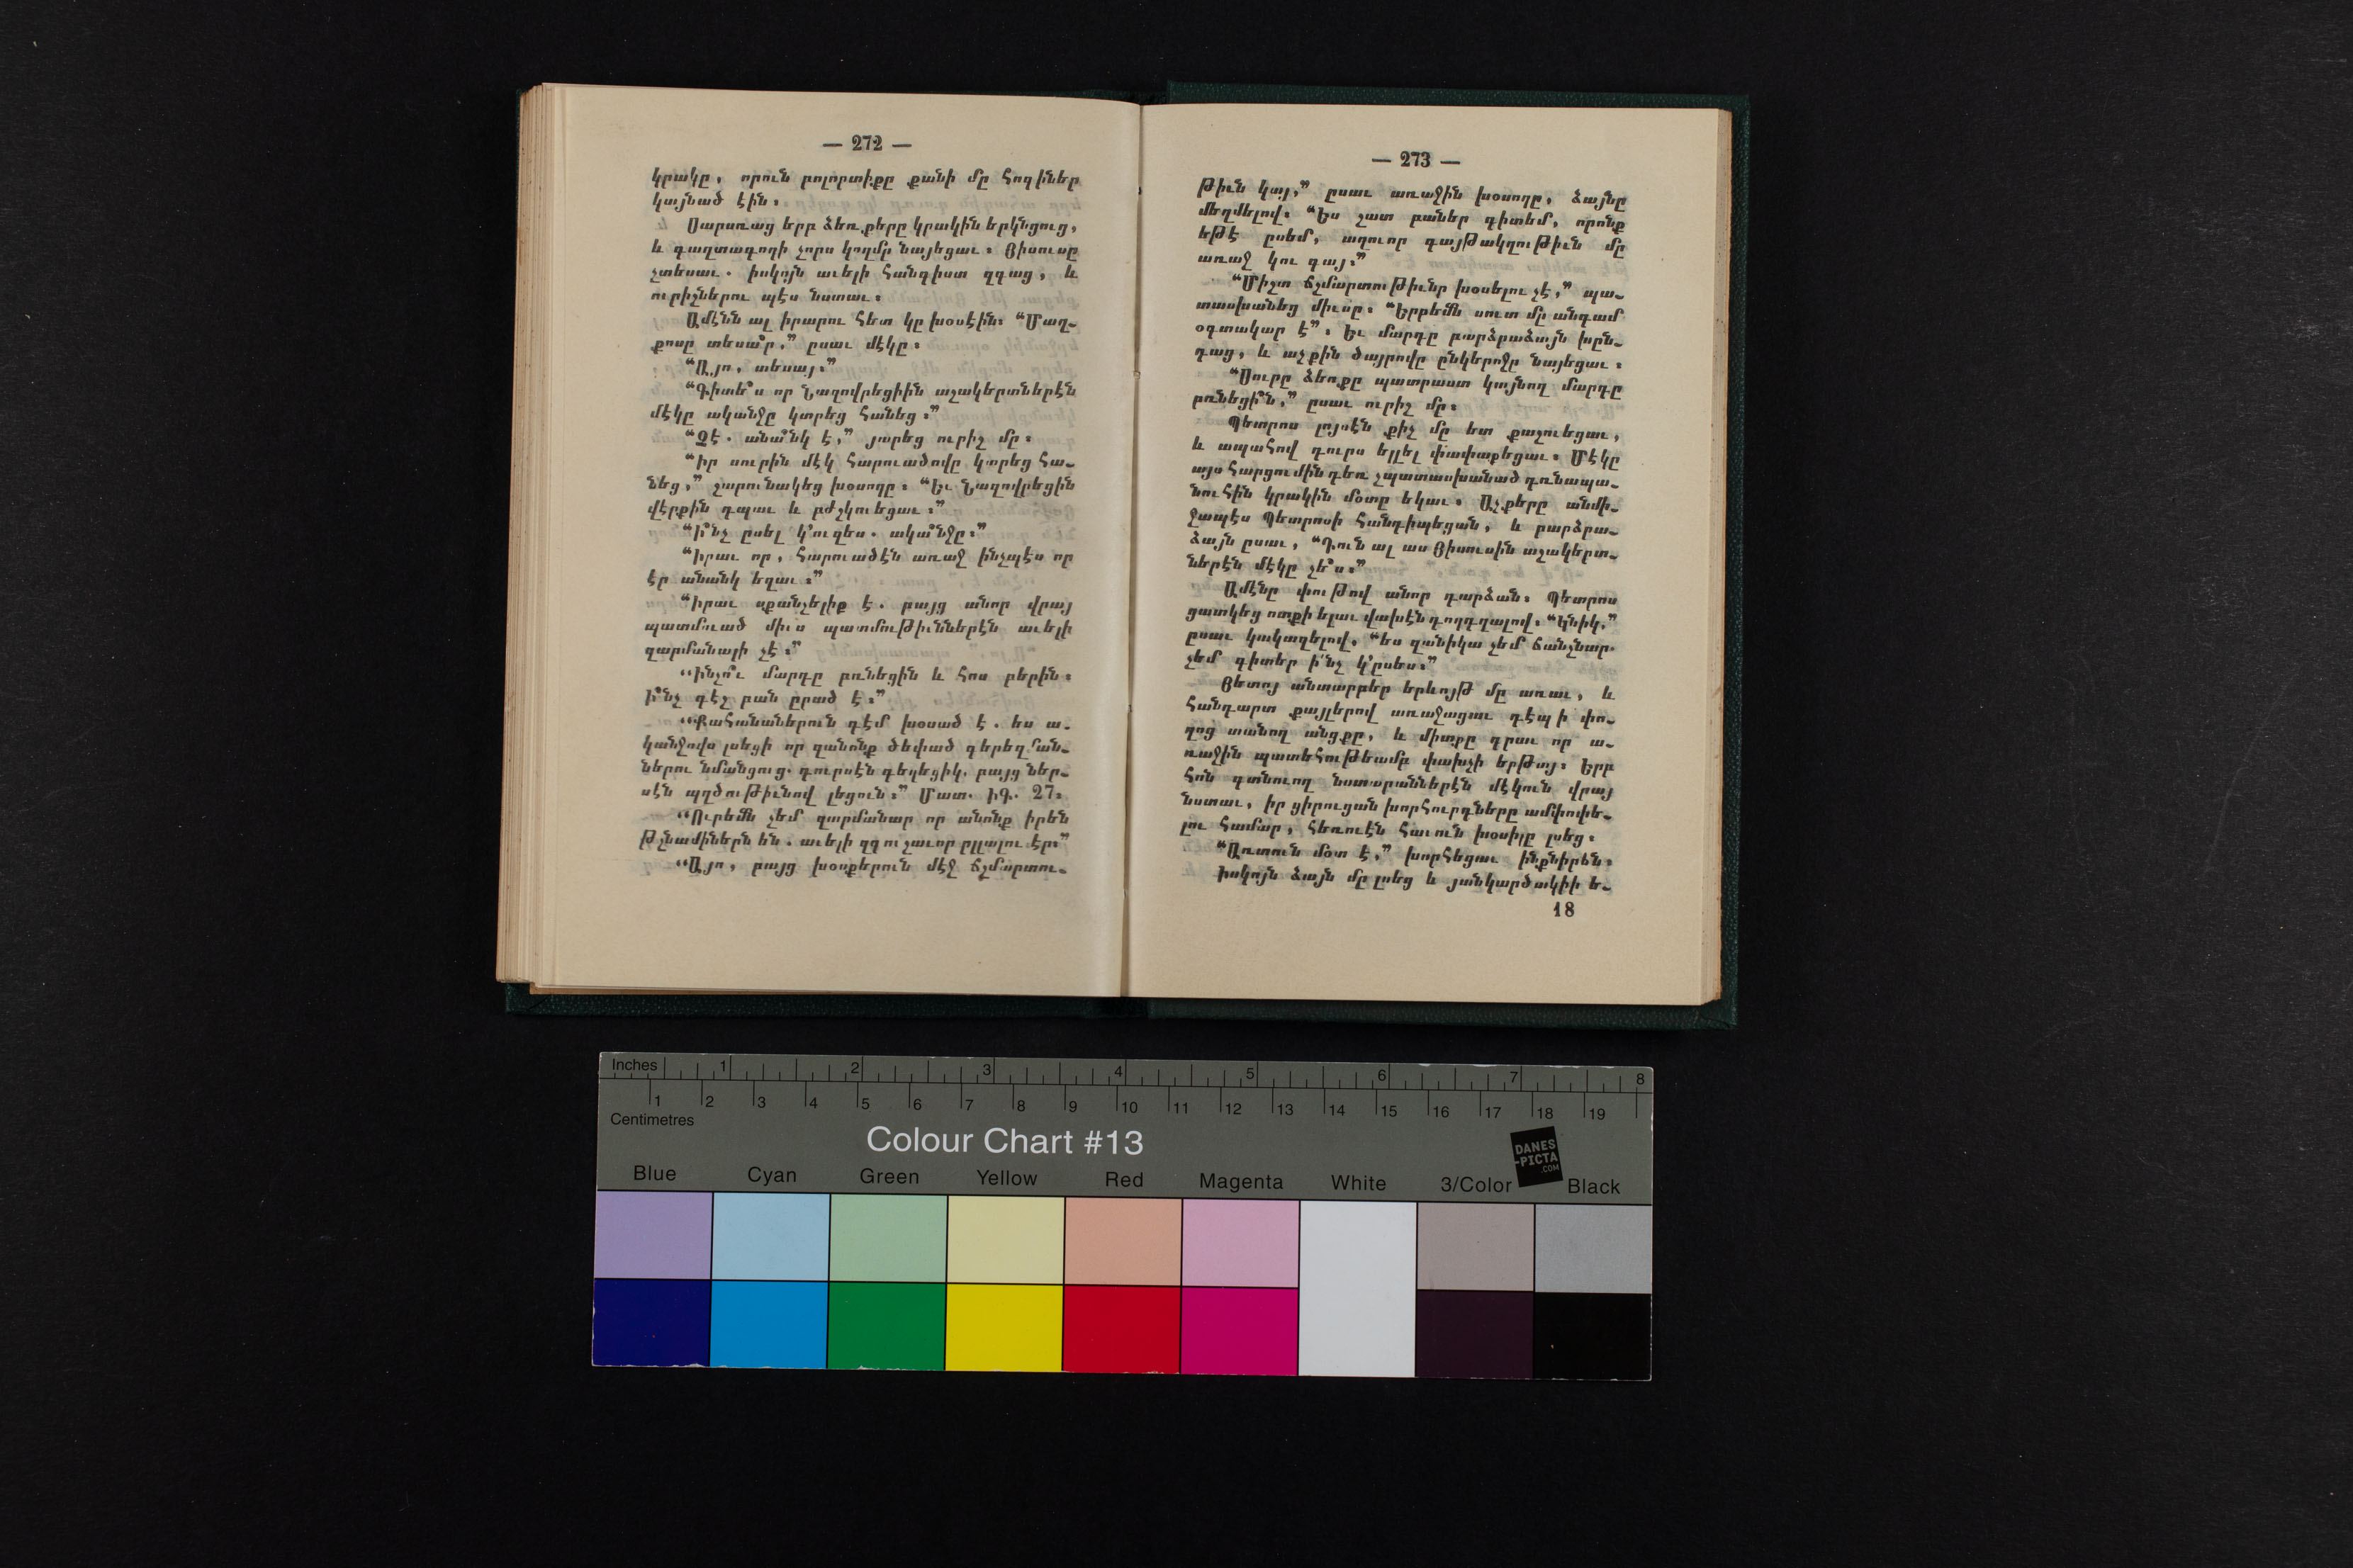 — 272 —
կրակը, որուն բոլորտիքը քանի մը հոգիներ
կայնած էին։
Սարսռաց երբ ձեռքերը կրակին երկնցուց,
և գաղտագողի չորս կողմը նայեցաւ։ Յիսուսը
չտեսաւ. իսկոյն աւելի հանգիստ զգաց, և
ուրիշներու պէս նստաւ։
Ամէնն ալ իրարու հետ կը խօսէին։ “Մաղ-
քոսը տեսա՞ր,” ըսաւ մէկը։
“Այո, տեսայ։”
“Գիտե՞ս որ Նազովրեցիին աշակերտներէն
մէկը ականջը կտրեց հանեց։”
“Չէ. անա՞նկ է,” յարեց ուրիշ մը։
“Իր սուրին մէկ հարուածովը կտրեց հա-
նեց,” շարունակեց խօսողը։ “Եւ Նազովրեցին
վէրքին դպաւ և բժշկուեցաւ։”
“Ի՞նչ ըսել կ՚ուզես. ականջը։”
“Իրաւ որ, հարուածէն առաջ ինչպէս որ
էր անանկ եղաւ։”
“Իրաւ սքանչելիք է. բայց անոր վրայ
պատմուած միւս պատմութիւններէն աւելի
զարմանալի չէ։”
“Ինչո՞ւ մարդը բռնեցին և հոս բերին։
Ի՞նչ գէշ բան ըրած է։”
“Քահանաներուն դէմ խօսած է. ես ա-
կանջովս լսեցի որ զանոնք ծեփած գերեզման-
ներու նմանցուց. դուրսէն գեղեցիկ, բայց ներ-
սէն պղծութիւնով լեցուն։” Մատ. ԻԳ. 27։
“Ուրեմն չեմ զարմանար որ անոնք իրեն
թշնամիներն են. աւելի զգուշաւոր ըլլալու էր։”
“Այո, բայց խօսքերուն մէջ ճշմարտու-
— 273 —
թիւն կայ,” ըսաւ առաջին խօսողը, ձայնը
մեղմելով։ “Ես շատ բաներ գիտեմ, որոնք
եթէ ըսեմ, աղուոր գայթակղութիւն մը
առաջ կու գայ։”
“Միշտ ճշմարտութիւնը խօսելու չէ,” պա-
տասխանեց միւսը։ “Երբեմն սուտ մը անգամ
օգտակար է”։ Եւ մարդը բարձրաձայն խըն-
դաց, և աչքին ծայրովը ընկերոջը նայեցաւ։
“Սուրը ձեռքը պատրաստ կայնող մարդը
բռնեցի՞ն,” ըսաւ ուրիշ մը։
Պետրոս լոյսէն քիչ մը ետ քաշուեցաւ,
և ապահով դուրս ելլել փափաքեցաւ։ Մէկը
այս հարցումին դեռ չպատասխանած դռնապա-
նուհին կրակին մօտը եկաւ։ Աչքերը անմի-
ջապէս Պետրոսի հանդիպեցան, և բարձրա-
ձայն ըսաւ, “Դուն ալ աս Յիսուսին աշակերտ-
ներէն մէկը չե՞ս։”
Ամէնը փութով անոր դարձան։ Պետրոս
ցատկեց ոտքի ելաւ վախէն դողդղալով։ “Կնիկ,”
ըսաւ կակազելով, “ես զանիկա չեմ ճանչնար.
չեմ գիտեր ի՛նչ կ՚ըսես։”
Յետոյ անտարբեր երևոյթ մը առաւ, և
հանդարտ քայլերով առաջացաւ դէպ ի փո-
ղոց տանող անցքը, և միտքը դրաւ որ ա-
ռաջին պատեհութեամբ փախչի երթայ։ Երբ
հոն գտնուող նստարաններէն մէկուն վրայ
նստաւ, իր ցիրուցան խորհուրդները ամփոփե-
լու համար, հեռուէն հաւուն խօսիլը լսեց։
“Առտուն մօտ է,” խորհեցաւ ինքնիրեն։
Իսկոյն ձայն մը լսեց և յանկարծակիի ե-
18
Inches 1 2 3 4 5 6 7 8
1 2 3 4 5 6 7 8 9 10 11 12 13 14 15 16 17 18 19
Centimetres
Colour Chart #13
DANES
-PICTA
.COM
Blue Cyan Green Yellow Red Magenta White 3/Color Black